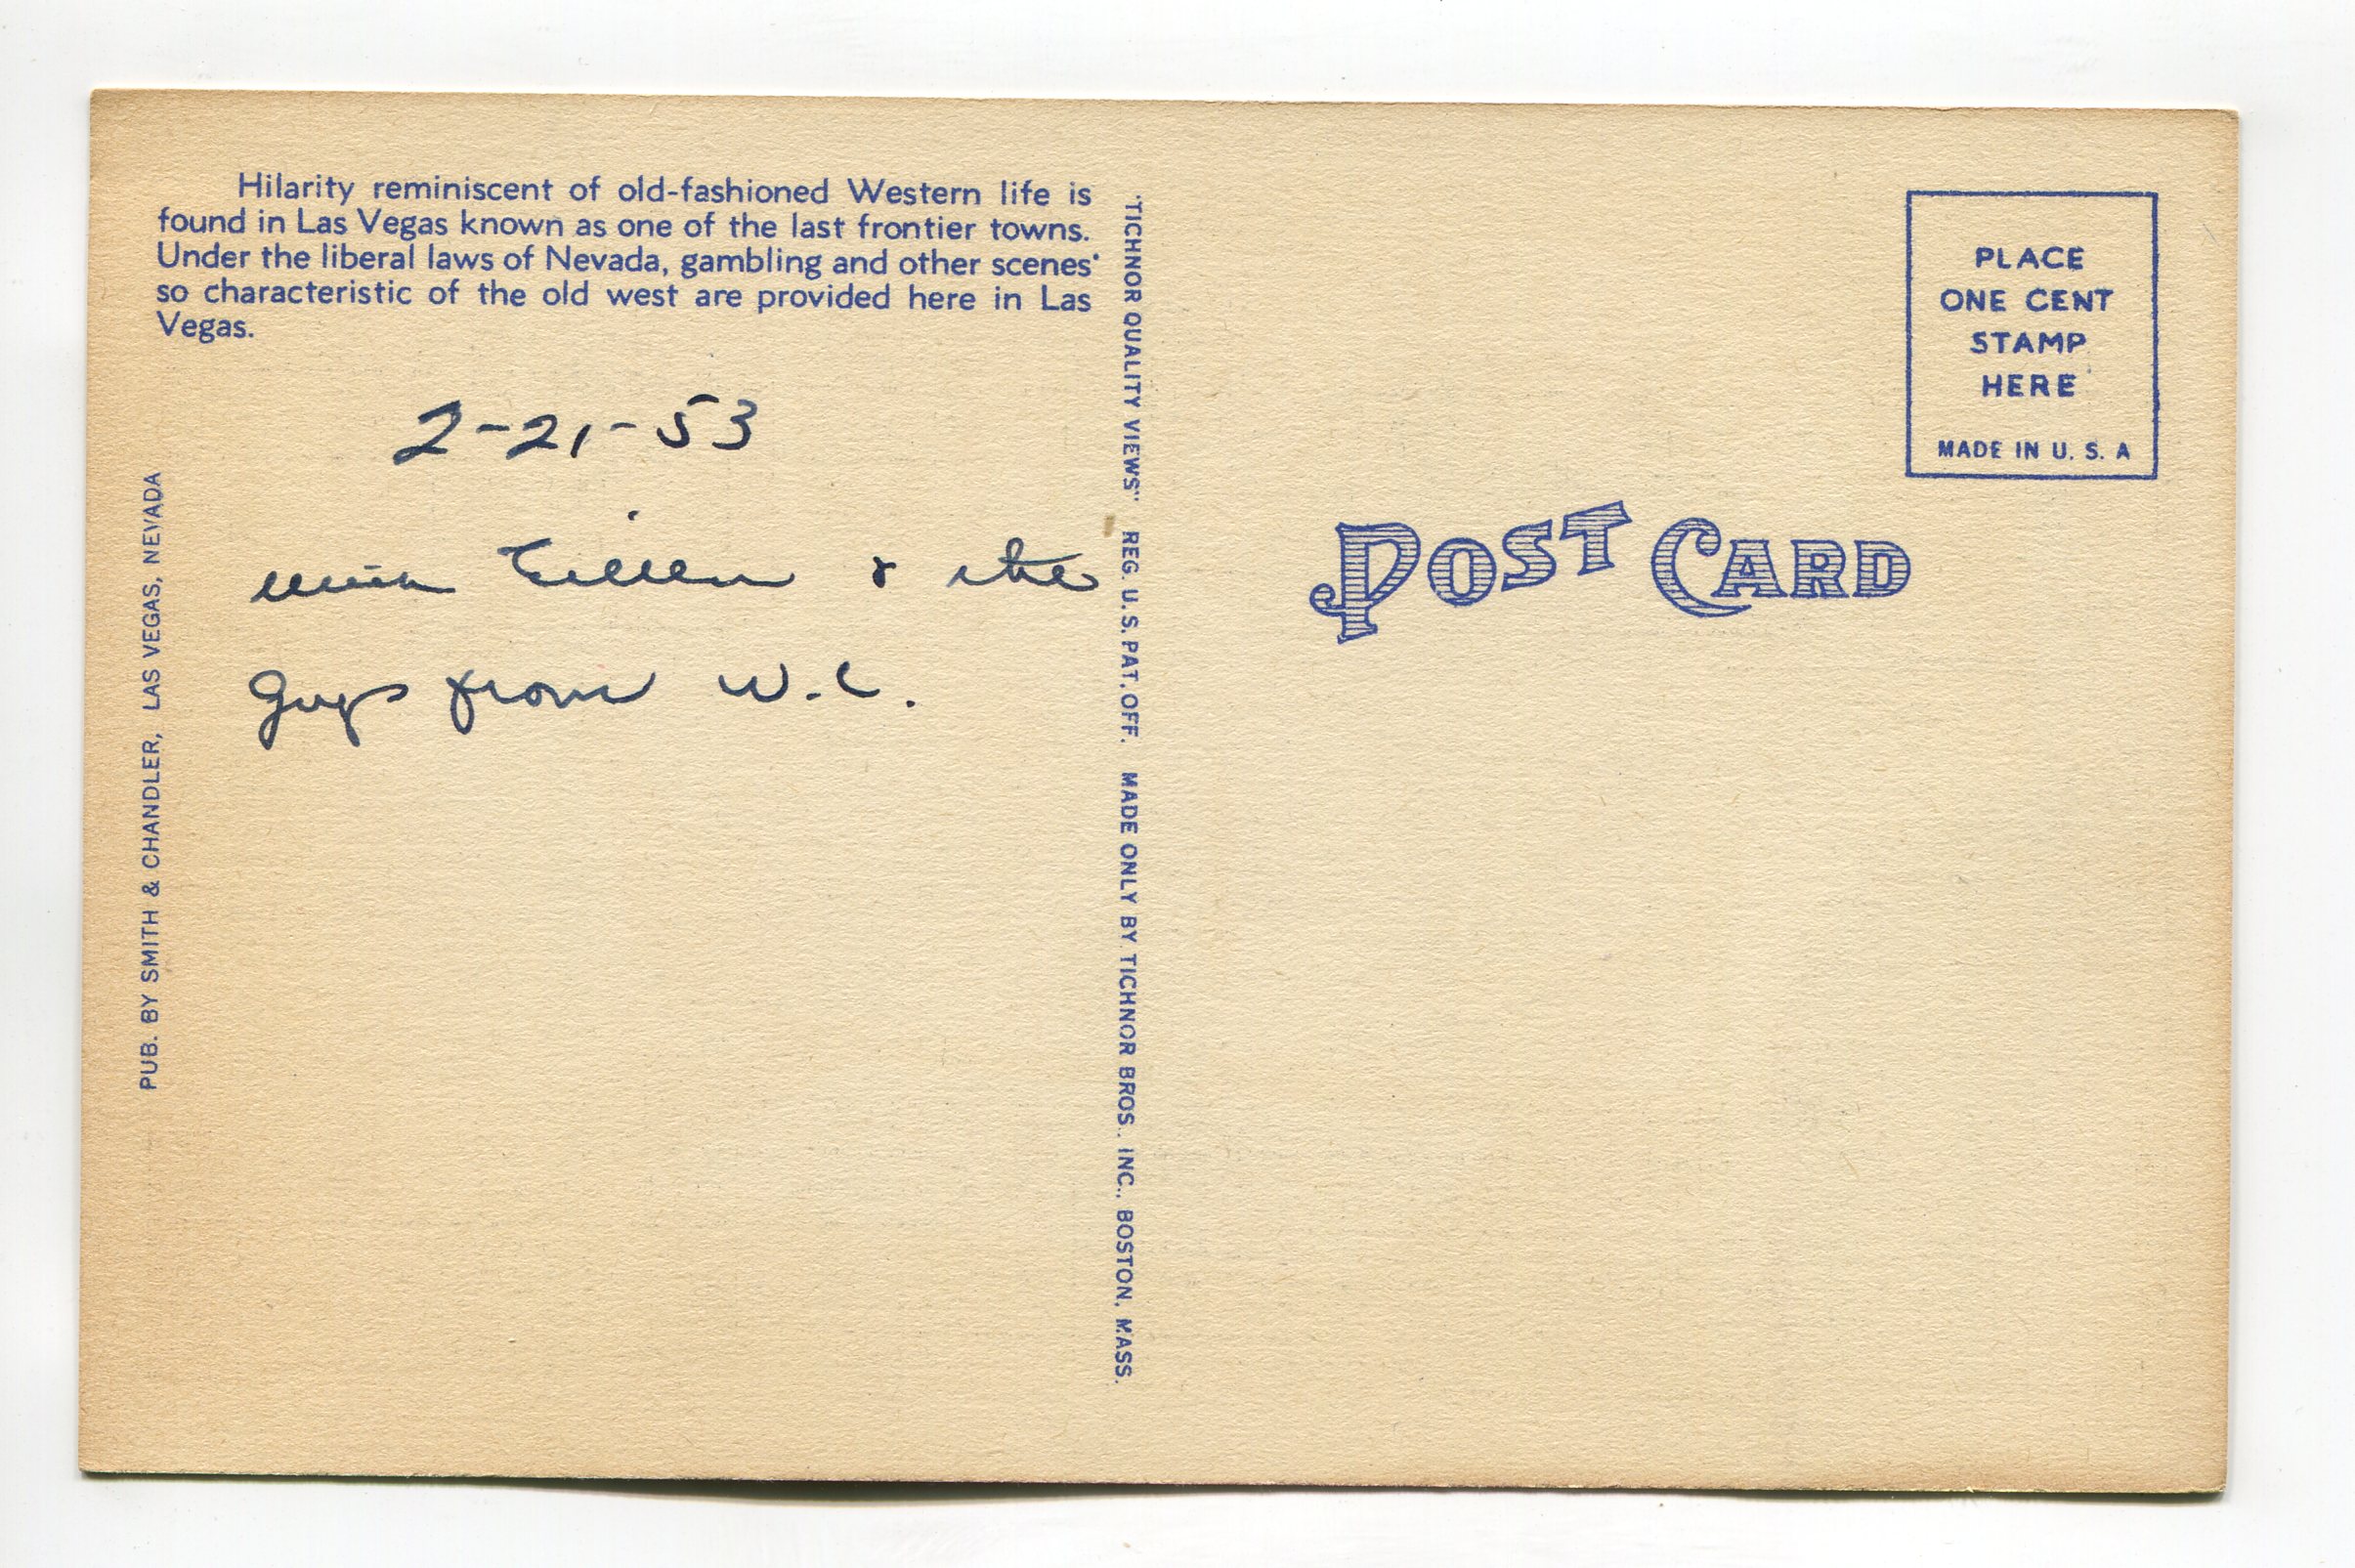 Hilarity reminiscent of old-fashioned Western life is
found in Las Vegas known as one of the last frontier towns.
Under the liberal laws of Nevada, gambling and other scenes'
so characteristic of the old west are provided here in Las
Vegas.
2-21-53
with Eileen & the
Guys from W.C.
PUB. BY SMITH & CHANDLER, LAS VEGAS, NEVADA
"TICHNOR QUALITY VIEWS" REG. U. S. PAT. OFF. MADE ONLY BY TICHNOR BROS., INC., BOSTON, MASS.
PLACE
ONE CENT
STAMP
HERE
MADE IN U. S. A
POST CARD